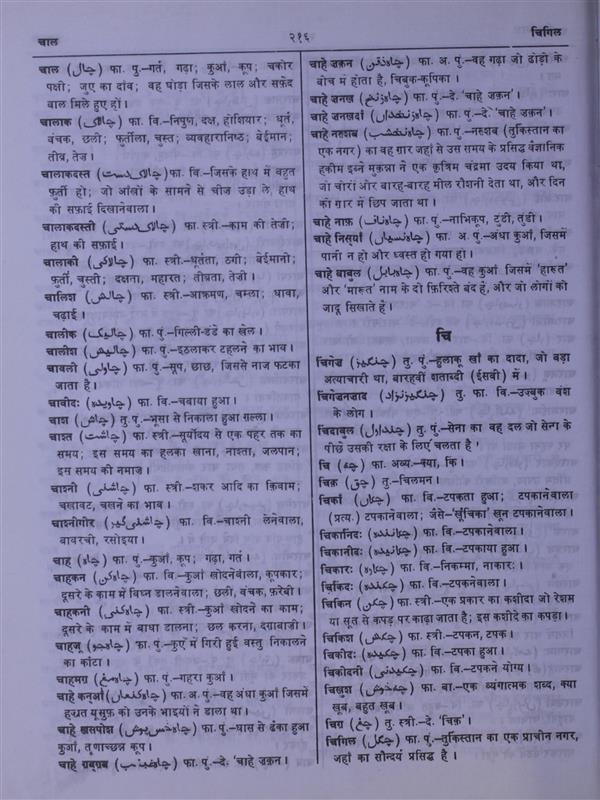 चाल
२१६
चिगिल
चाल (چال) फा. पुं.–गर्त, गढ़ा; कुआँ, कूप; चकोर
पक्षी; जुए का दाँव; वह घोड़ा जिसके लाल और सफ़ेद
बाल मिले हुए हों।
चालाक (چالاک) फा. वि.–निपुण, दक्ष, होशियार; धूर्त,
वंचक, छली; फुर्तीला, चुस्त; व्यवहारनिष्ठ; बेईमान;
तीव्र, तेज़।
चालाकदस्त (چالاک دست) फा. वि.–जिसके हाथ में बहुत
फुर्ती हो; जो आँखों के सामने से चीज उड़ा ले, हाथ
की सफ़ाई दिखानेवाला।
चालाकदस्ती (چالاک دستی) फा. स्त्री.–काम की तेजी;
हाथ की सफ़ाई।
चालाकी (چالاکی) फा. स्त्री.–धूर्तता, ठगी; बेईमानी;
फुर्ती, चुस्ती; दक्षता, महारत; तीव्रता, तेज़ी।
चालिश (چالش) फा. स्त्री.–आक्रमण, हम्ला; धावा,
चढ़ाई।
चालीक (چالیک) फा. पुं.–गिल्ली-डंडे का खेल।
चालीश (چالیش) फा. पुं.–इठलाकर टहलने का भाव।
चावली (چاولی) फा. पुं.–सूप, छाछ, जिससे नाज फटका
जाता है।
चावीदः (چاویدہ) फा. वि.–चबाया हुआ।
चाश (چاش) तु. पुं.–भूसा से निकाला हुआ गल्ला।
चाश्त (چاشت) फा. स्त्री.–सूर्योदय से एक पहर तक का
समय; इस समय का हलका खाना, नाश्ता, जलपान;
इस समय की नमाज़।
चाश्नी (چاشنی) फा. स्त्री.–शकर आदि का क़िवाम;
चखावट, चखने का भाव।
चाश्नीगीर (چاشنی گیر) फा. वि.–चाश्नी लेनेवाला,
बावरची, रसोइया।
चाह (چاہ) फा. पुं.–कुआँ, कूप; गढ़ा, गर्त।
चाहकन (چاہ کن) फा. वि.–कुआँ खोदनेवाला, कूपकार;
दूसरे के काम में विघ्न डालनेवाला; छली, वंचक, फ़रेबी।
चाहकनी (چاہ کنی) फा. स्त्री.–कुआँ खोदने का काम;
दूसरे के काम में बाधा डालना; छल करना, दग़ाबाज़ी।
चाहजू (چاہ جو) फा. पुं.–कुएँ में गिरी हुई वस्तु निकालने
का काँटा।
चाहमग़ (چاہ مغ) फा. पुं.–गहरा कुआँ।
चाहे कन्आँ (چاہ کنعاں) फा. अ. पुं.–वह अंधा कुआँ जिसमें
हज़रत यूसुफ़ को उनके भाइयों ने डाला था।
चाहे खसपोश (چاہ خس پوش) फा. पुं.–घास से ढंका हुआ
कुआँ, तृणाच्छन्न कूप।
चाहे ग़ब्ग़ब (چاہ غبغب) फा. पुं.–दे. 'चाहे ज़क़न'।
चाहे ज़क़न (چاہ ذقن) फा. अ. पुं.–वह गढ़ा जो ठोड़ी के
बीच में होता है, चिबुक-कूपिका।
चाहे ज़नख़ (چاہ زنخ) फा. पुं.–दे. 'चाहे ज़क़न'।
चाहे ज़नख़दाँ (چاہ زنخداں) फा. पुं.–दे. 'चाहे ज़क़न'।
चाहे नख़्शब (چاہ نخشب) फा. पुं.–नख़्शब (तुर्किस्तान का
एक नगर) का वह ग़ार जहाँ से उस समय के प्रसिद्ध वैज्ञानिक
हकीम इब्ने मुक़न्ना ने एक कृत्रिम चंद्रमा उदय किया था,
जो चारों ओर बारह-बारह मील रौशनी देता था, और दिन
को ग़ार में छिप जाता था।
चाहे नाफ़ (چاہ ناف) फा. पुं.–नाभिकूप, टुंटी, तुंडी।
चाहे निस्याँ (چاہ نسیاں) फा. अ. पुं.–अंधा कुआँ, जिसमें
पानी न हो और ध्वस्त हो गया हो।
चाहे बाबुल (چاہ بابل) फा. पुं.–वह कुआँ जिसमें 'हारूत'
और 'मारूत' नाम के दो फ़िरिश्ते बंद हैं, और जो लोगों को
जादू सिखाते हैं।
चि
चिंगेज़ (چنگیز) तु. पुं.–हुलाकू खाँ का दादा, जो बड़ा
अत्याचारी था, बारहवीं शताब्दी (ईसवी) में।
चिंगेज़नज़ाद (چنگیز نژاد) तु. फा. वि.–उज़्बुक वंश
के लोग।
चिंदावुल (چنداول) तु. पुं.–सेना का वह दल जो सेना के
पीछे उसकी रक्षा के लिए चलता है।
चि (چہ) फा. अव्य.–क्या, कि।
चिक़ (چق) तु.–चिलमन।
चिकाँ (چکاں) फा. वि.–टपकता हुआ; टपकानेवाला
(प्रत्य.) टपकानेवाला; जैसे–'खूँचिकाँ' खून टपकानेवाला।
चिकानिंदः (چکانندہ) फा. वि.–टपकानेवाला।
चिकानीदः (چکانیدہ) फा. वि.–टपकाया हुआ।
चिकारः (چکارہ) फा. वि.–निकम्मा, नाकारः।
चिकिंदः (چکندہ) फा. वि.–टपकनेवाला।
चिकिन (چکن) फा. स्त्री.–एक प्रकार का कशीदा जो रेशम
या सूत से कपड़े पर काढ़ा जाता है; इस कशीदे का कपड़ा।
चिकिश (چکش) फा. स्त्री.–टपकन, टपक।
चिकीदः (چکیدہ) फा. वि.–टपका हुआ।
चिकीदनी (چکیدنی) फा. वि.–टपकने योग्य।
चिख़ुश (چہ خوش) फा. वा.–एक व्यंगात्मक शब्द, क्या
खूब, बहुत खूब।
चिग़ (چغ) तु. स्त्री.–दे. 'चिक़'।
चिगिल (چگل) फा. पुं.–तुर्किस्तान का एक प्राचीन नगर,
जहाँ का सौन्दर्य प्रसिद्ध है।